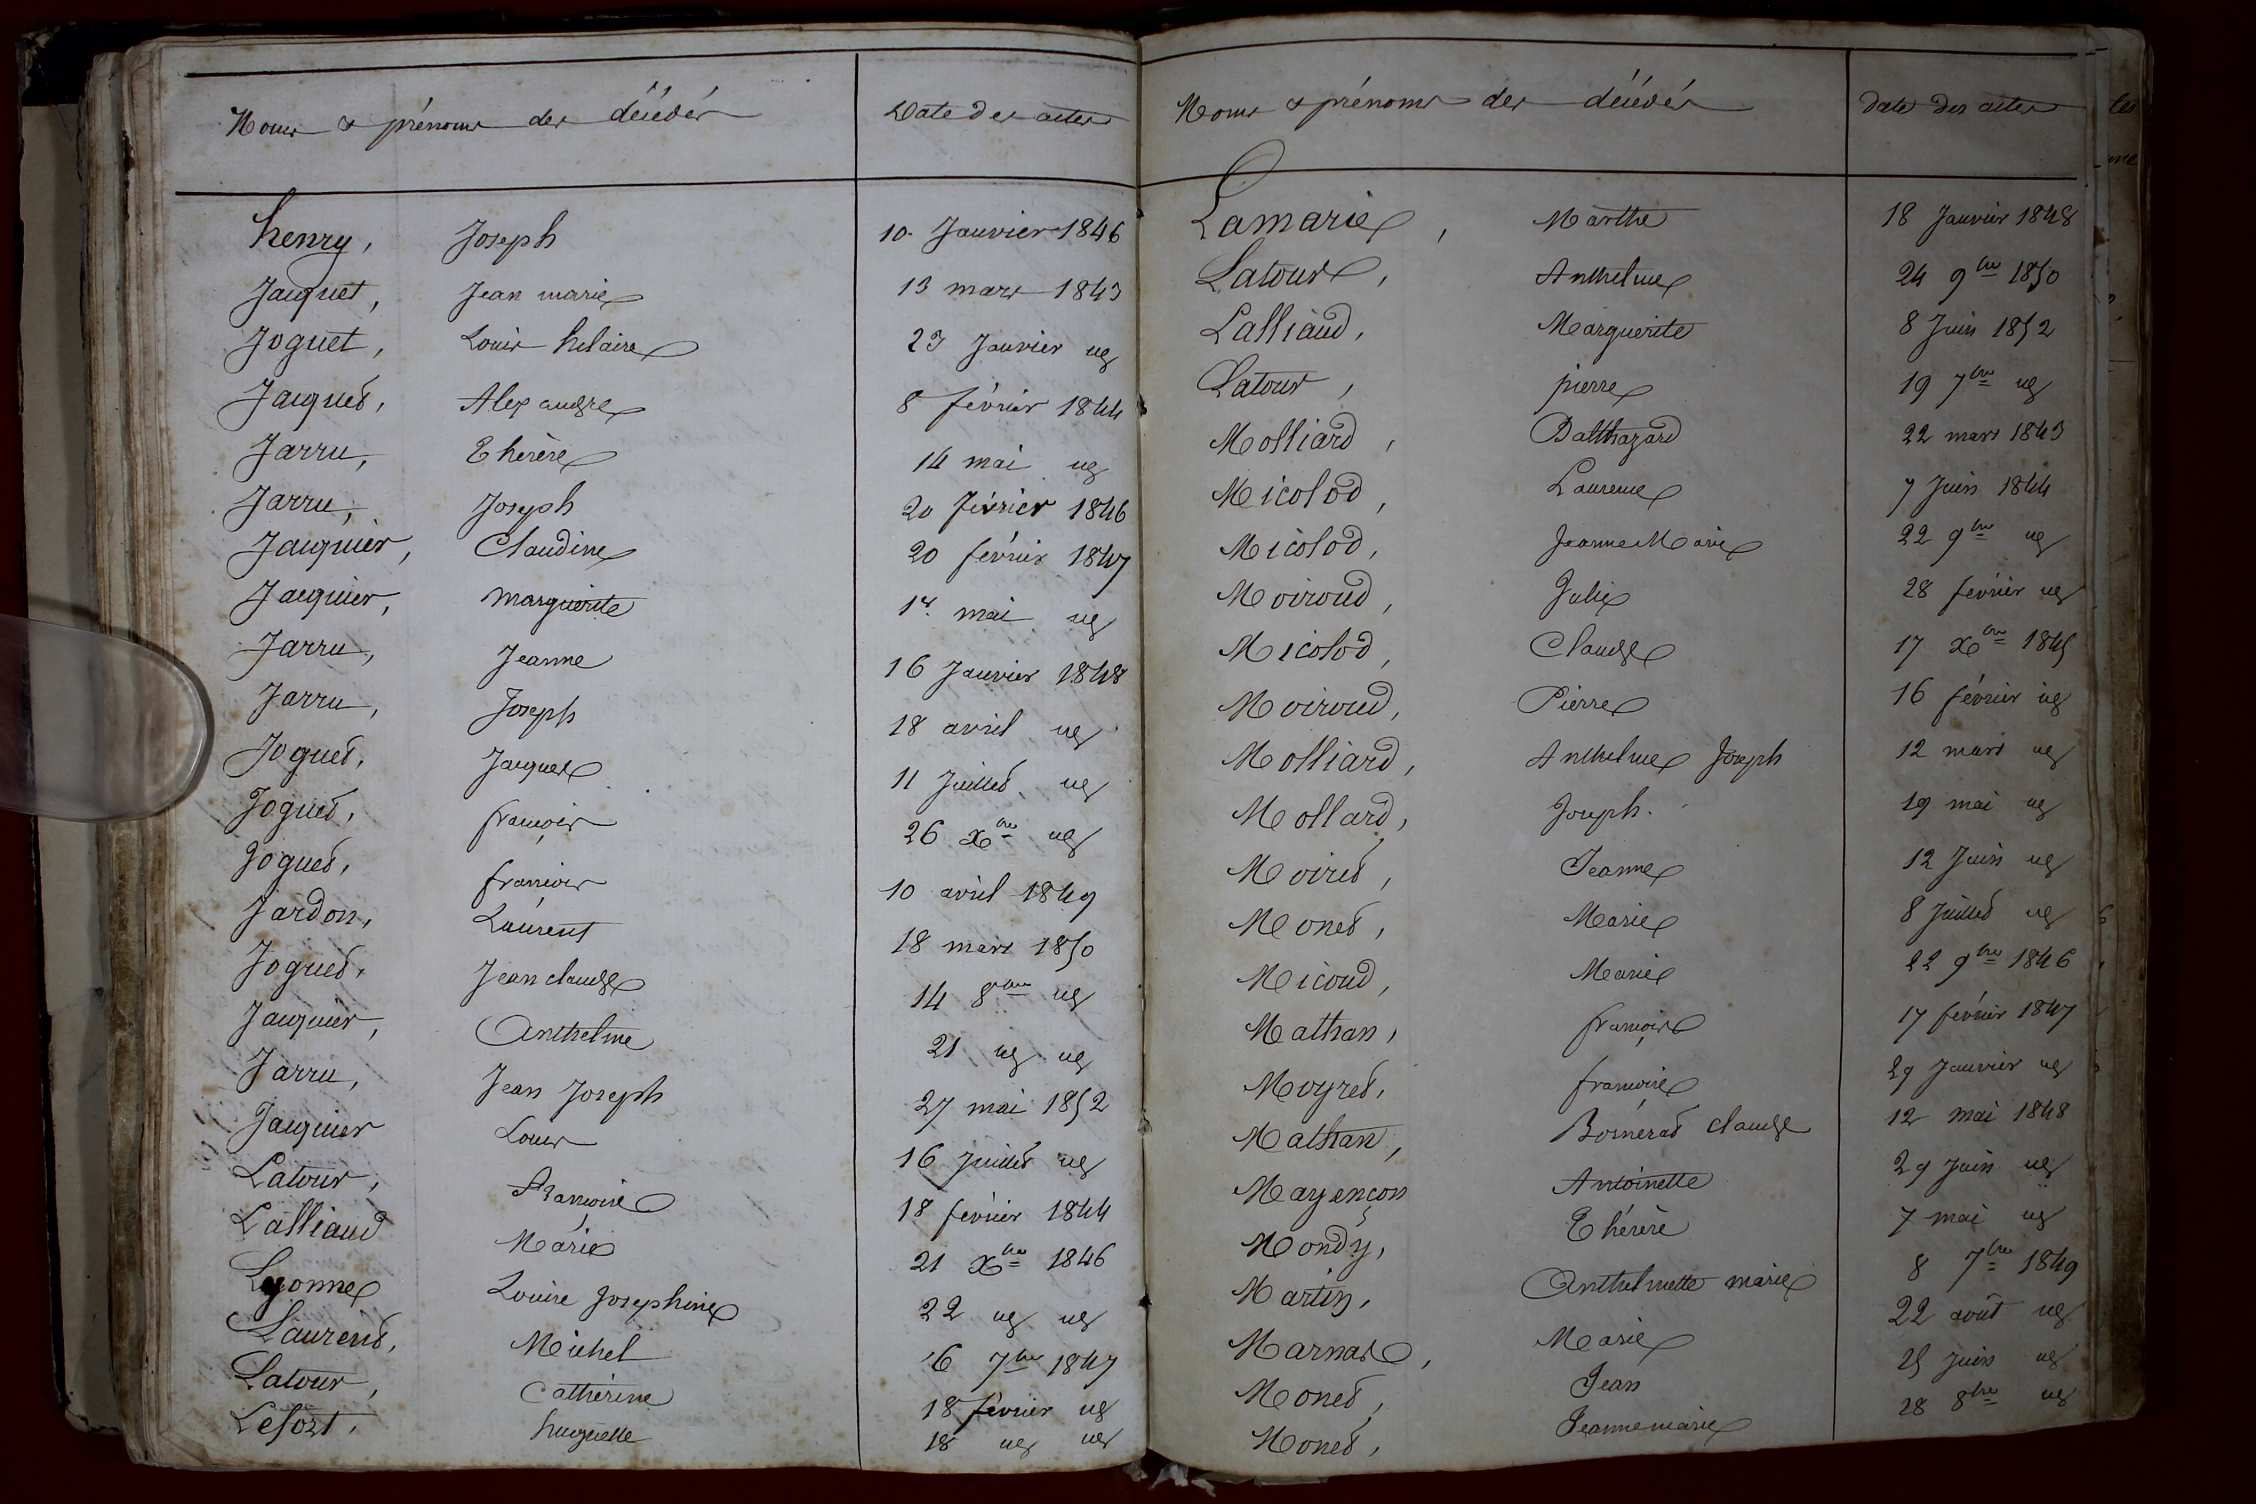 Noms & prénoms des décédés Date des actes
henry, Joseph 10 Janvier 1846
Jacquet, Jean marie 13 mars 1843
Joguet, Louis hilaire 23 Janvier id
Jacquet, Alexandre 8 février 1844
Jarru, Thérèse 14 mai id
Jarru, Joseph 20 février 1846
Jacquier, Claudine 20 février 1847
Jacquier, marguerite 1er mai id
Jarru, Jeanne 16 Janvier 1848
Jarru, Joseph 18 avril id
Joguet, Jacques 11 Juillet id
Joguet, françois 26 Xbre id
Joguet, françois 10 avril 1849
Jardon, Laurent 18 mars 1850
Joguet, Jean claude 14 8bre id
Jacquier, Anthelme 21 id id
Jarru, Jean Joseph 27 mai 1852
Jacquier Louis 16 Juillet id
Latour, Françoise 18 février 1844
Lalliaud Marie 21 Xbre 1846
Lyonne Louise Josephine 22 id id
Laurent, Michel 6 7bre 1847
Latour, Catherine 18 février id
Lefort, huguette 18 id id
Noms & prénoms des décédés date des actes
Lamarie, Marthe 18 Janvier 1848
Latour, Anthelme 24 9bre 1850
Lalliaud, Marguerite 8 Juin 1852
Latour, pierre 19 7bre id
Molliard, Balthazard 22 mars 1843
Micolod, Laurence 7 Juin 1844
Micolod, Jeanne Marie 22 9bre id
Moiroud, Julie 28 février id
Micolod, Claude 17 Xbre 1845
Moiroud, Pierre 16 février id
Molliard, Anthelme Joseph 12 mars id
Mollard, Joseph. 19 mai id
Moiret, Jeanne 12 Juin id
Monet, Marie 8 Juillet id
Micoud, Marie 22 9bre 1846
Mathan, françoise 17 février 1847
Moyret, françoise 29 Janvier id
Mathan, claude 12 mai 1848
Mayençon Antoinette 29 Juin id
Mondy, Thérèse 7 mai id
Martin, Anthelmette marie 8 7bre 1849
Marnas, Marie 22 août id
Monet, Jean 25 Juin id
Monet, Jeanne marie 28 8bre id